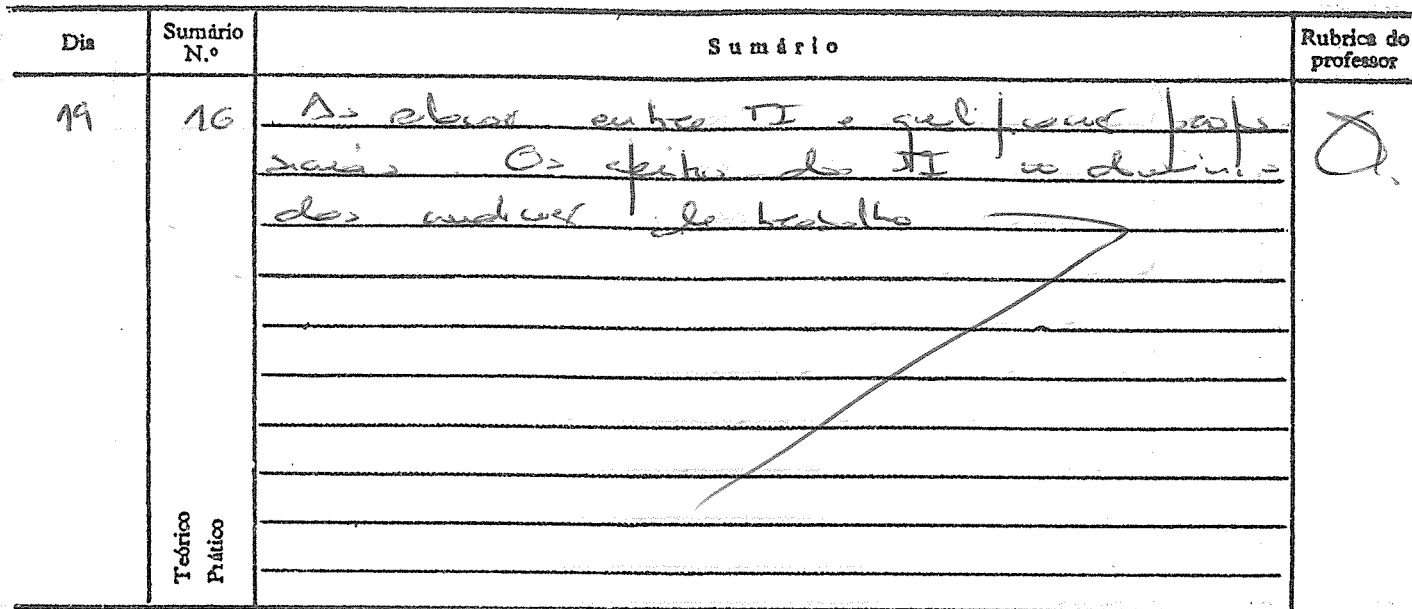 Dia Sumário N.º Sumário Rubrica do professor
19 16 As relações entre TI e qualificações profis-
sionais. Os efeitos das TI no domínio
das condições de trabalho
Teórico
Prático